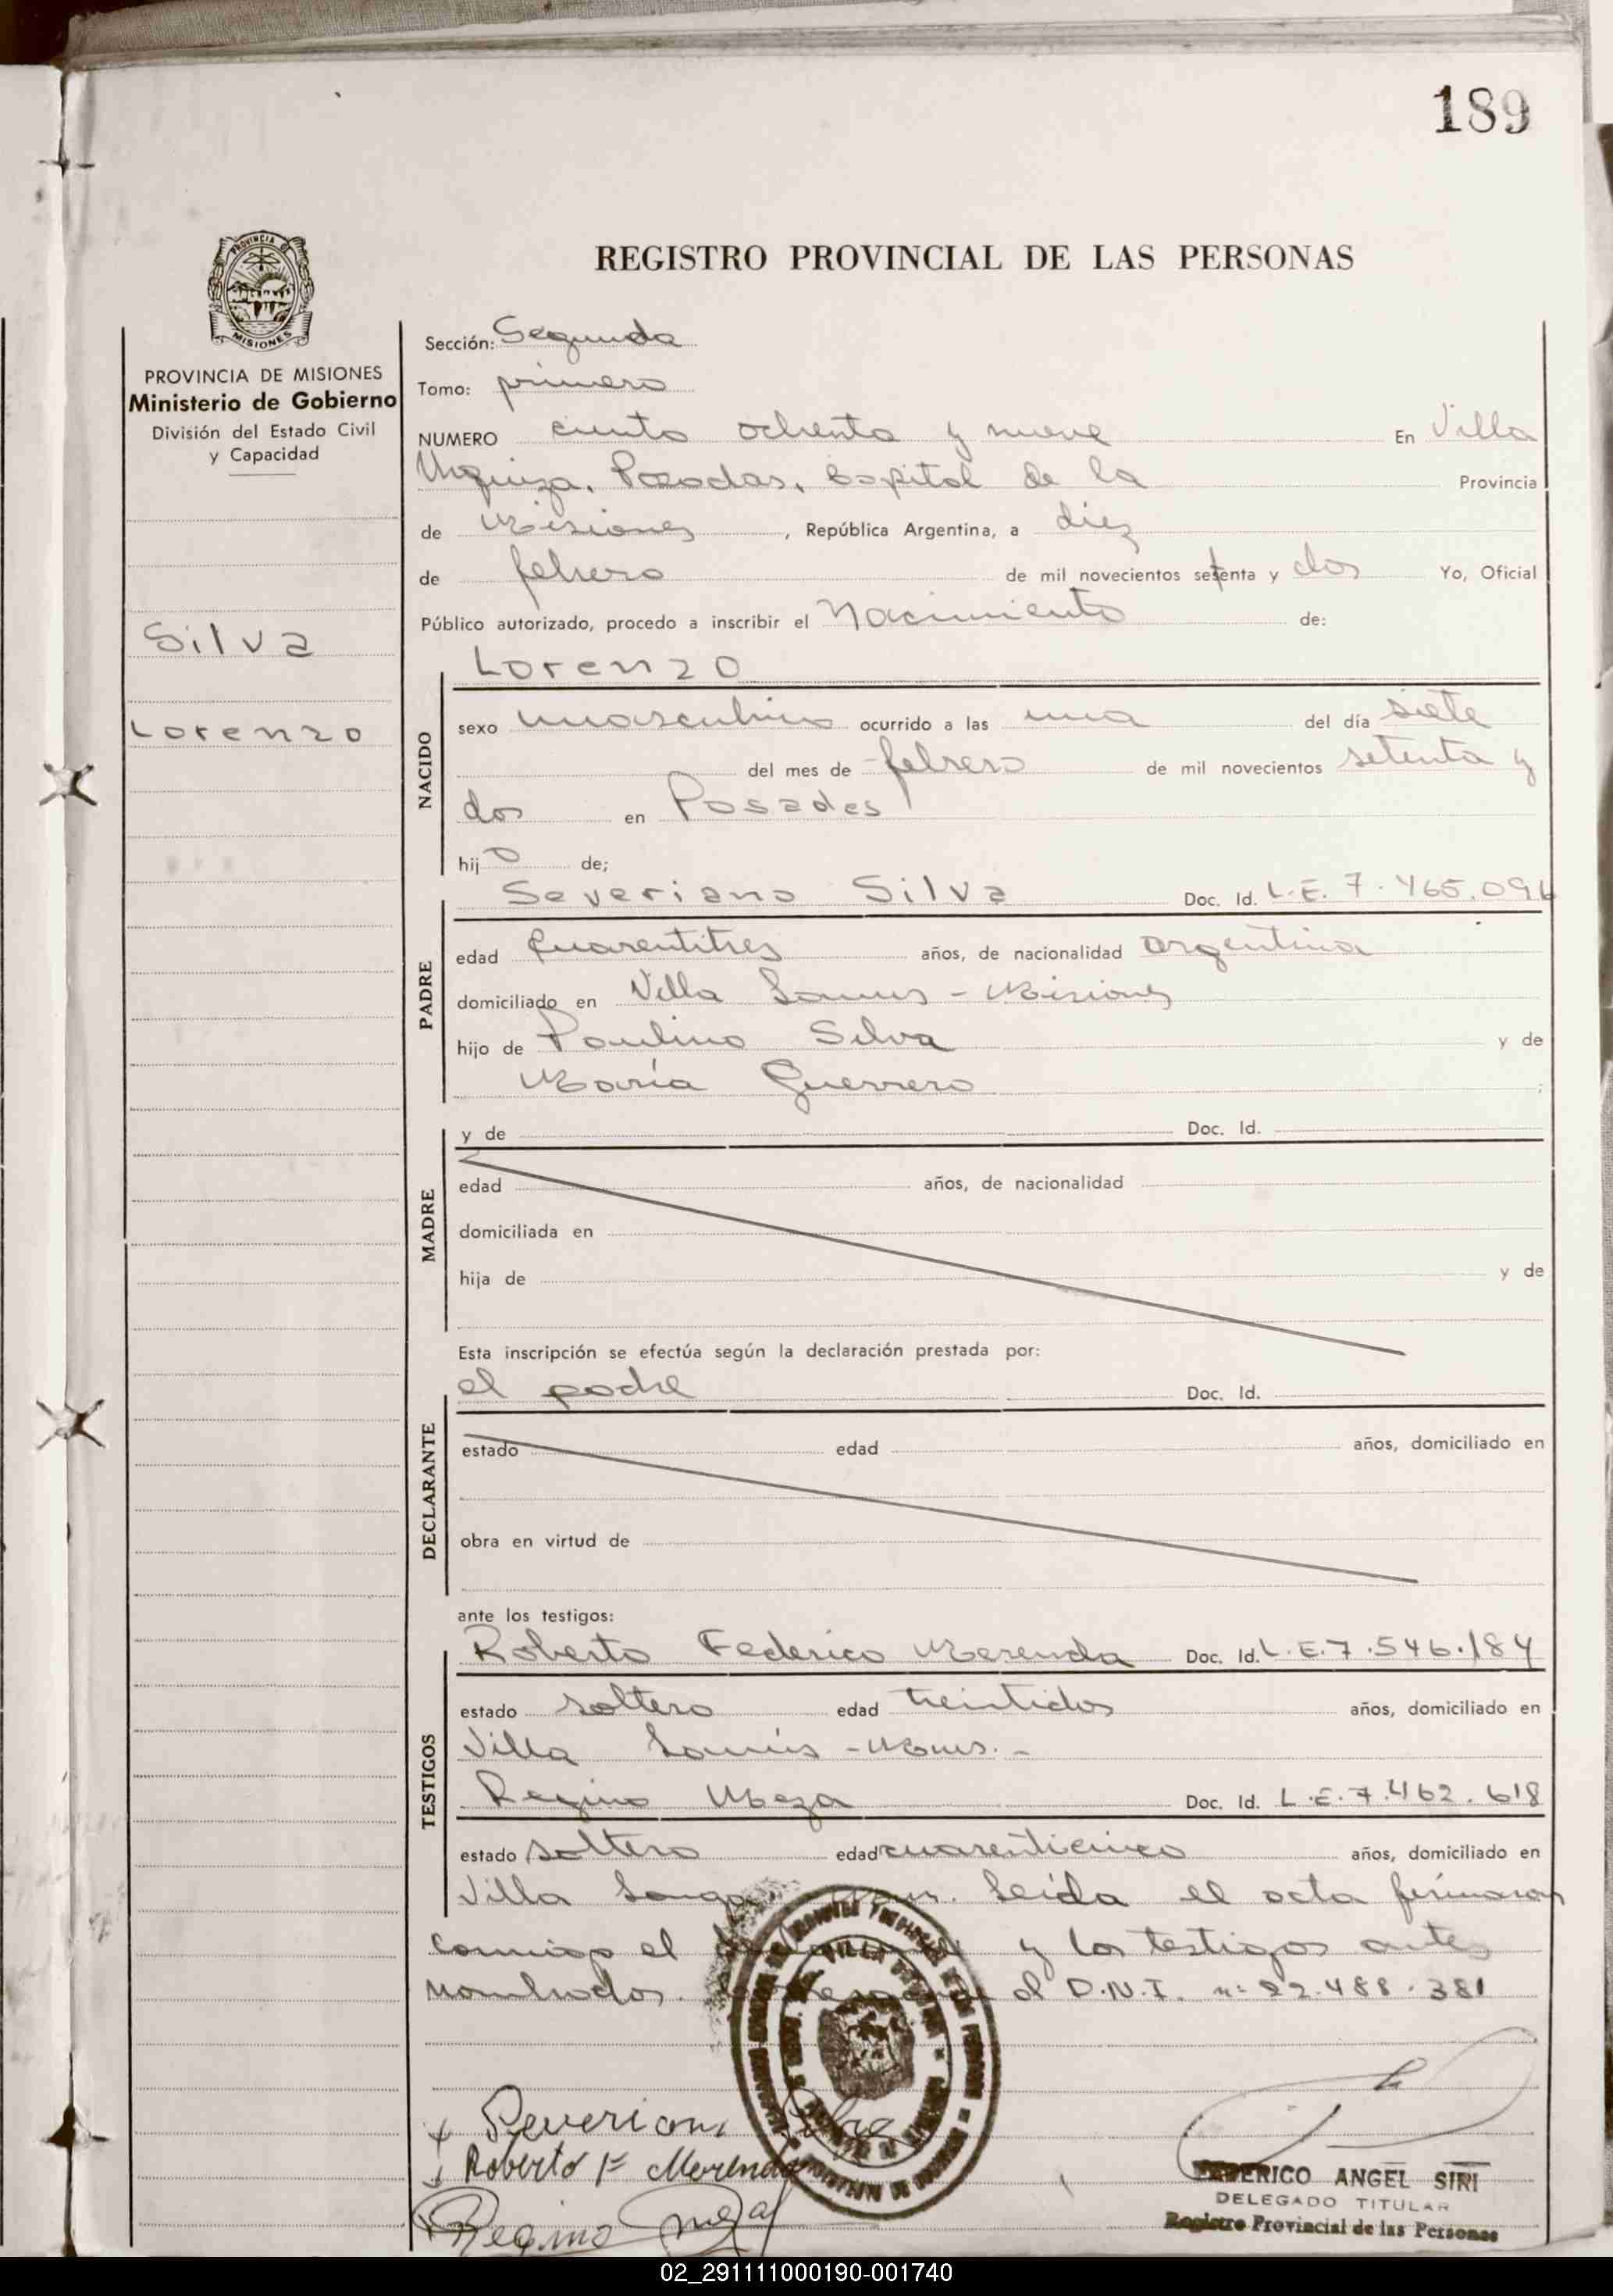 189
PROVINCIA DE
MISIONES
REGISTRO PROVINCIAL DE LAS PERSONAS
PROVINCIA DE MISIONES
Ministerio de Gobierno
División del Estado Civil
y Capacidad
Silva
Lorenzo
Sección: Segunda
Tomo: primero
NUMERO ciento ochenta y nueve En Villa
Urquiza, Posadas, Capital de la Provincia
de Misiones, República Argentina, a diez
de febrero de mil novecientos setenta y dos Yo, Oficial
Público autorizado, procedo a inscribir el Nacimiento de:
Lorenzo
NACIDO
sexo masculino ocurrido a las una del día siete
del mes de febrero de mil novecientos setenta y
dos en Posadas
hijo de;
Severiano Silva Doc. Id. L.E. 7.465.096
PADRE
edad cuarentitres años, de nacionalidad argentina
domiciliado en Villa Lanus - Misiones
hijo de Paulino Silva y de
María Guerrero ;
MADRE
y de Doc. Id.
edad años, de nacionalidad
domiciliada en
hija de y de
Esta inscripción se efectúa según la declaración prestada por:
el padre Doc. Id.
DECLARANTE
estado edad años, domiciliado en
obra en virtud de
ante los testigos:
TESTIGOS
Roberto Federico Merenda Doc. Id. L.E. 7.546.184
estado soltero edad treintidos años, domiciliado en
Villa Lanús - Mnes. -
Regino Meza Doc. Id. L.E. 7.462.618
estado soltero edad cuarenticinco años, domiciliado en
Villa Leída el acta firmaron
conmigo el y los testigos antes
nombrados. el D.N.I. nº 22.488.381
Severiano Silva
Roberto F Merenda
Regino Meza
FEDERICO ANGEL SIRI
DELEGADO TITULAR
Registro Provincial de las Personas
02_291111000190-001740